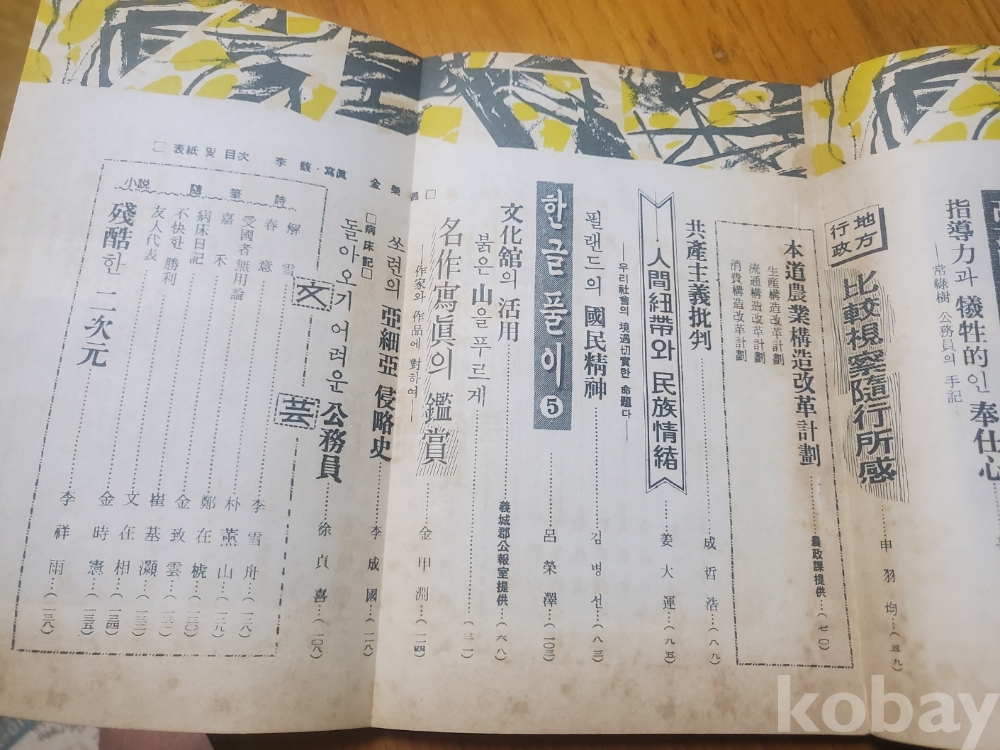 指導力과 犧牲的인 奉仕心
—常綠樹 公務員의 手記—
地方行政
比較視察隨行所感……申羽均…(五九)
本道農業構造改革計劃……農政課提供…(七〇)
生産構造改革計劃
流通構造改革計劃
消費構造改革計劃
共産主義批判……成哲浩…(八九)
人間紐帶와 民族情緖……姜大運…(九五)
—우리社會의 境遇切實한 命題다—
필랜드의 國民精神……김병선…(八三)
한글풀이 ❺……呂榮澤…(一〇三)
文化舘의 活用……義城郡公報室提供…(六八)
붉은 山을 푸르게
名作寫眞의 鑑賞……金甲洲…(一一四)
—作家와 作品에 對하여—
쏘련의 亞細亞 侵略史……李成國…(一一八)
□病床記□
돌아오기 어려운 公務員……徐貞喜…(一〇八)
文芸
詩
解雪……李雪舟…(一二八)
春意……朴薰山…(一二九)
隨筆
受國者無用論……鄭在
嘉不……金致雲
病床日記……崔基灝…(一三三)
不快한 勝利……文在相…(一三四)
友人代表……金時憲…(一三五)
小說
殘酷한 二次元……李祥雨…(一三八)
□ 表紙 및 目次 李 馥·寫眞 金榮昌 □
kobay